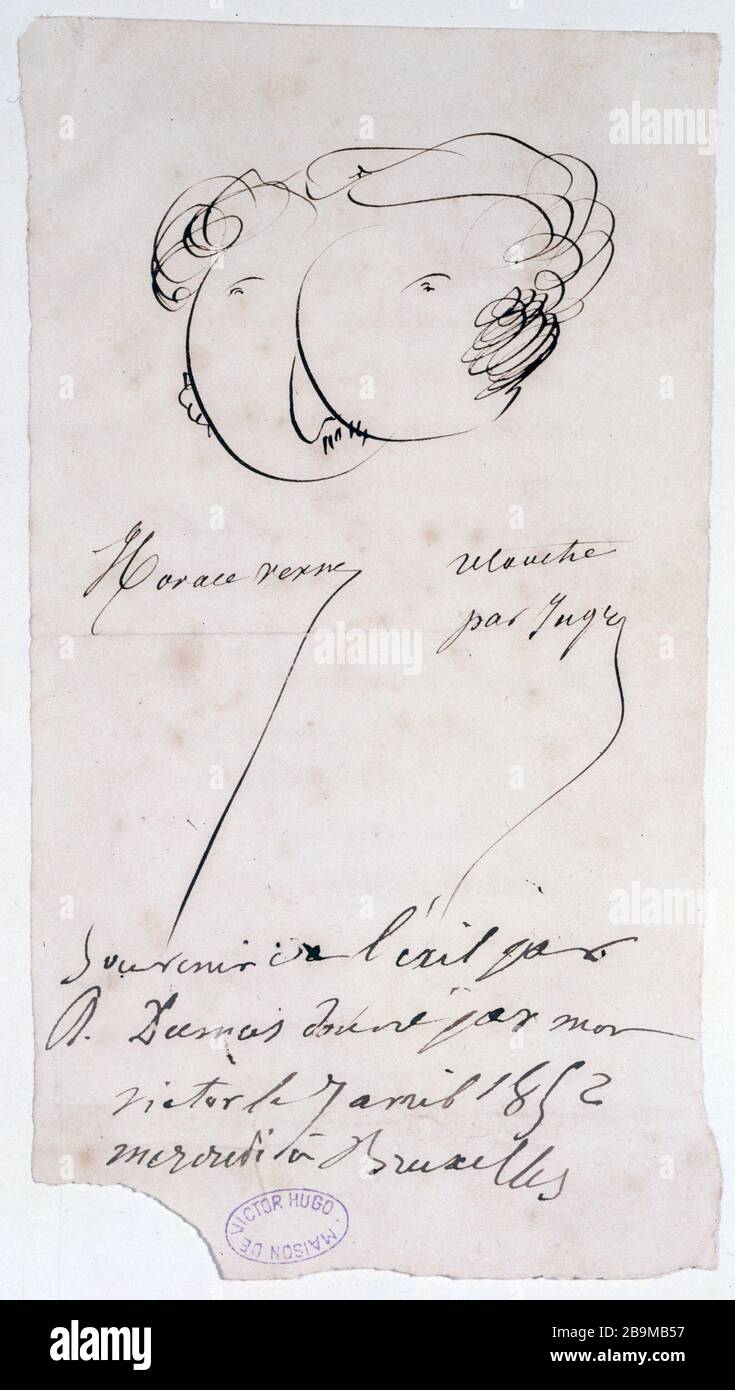 Horace verne
retouche
par Ingre
Souvenir de l'exil par
A. Dumas donné par mon
victor le 7 avril 1852
mercredi à Bruxelles
MAISON DE VICTOR HUGO
alamy
alamy
alamy
alamy
Image ID: 2B9MB57
www.alamy.com